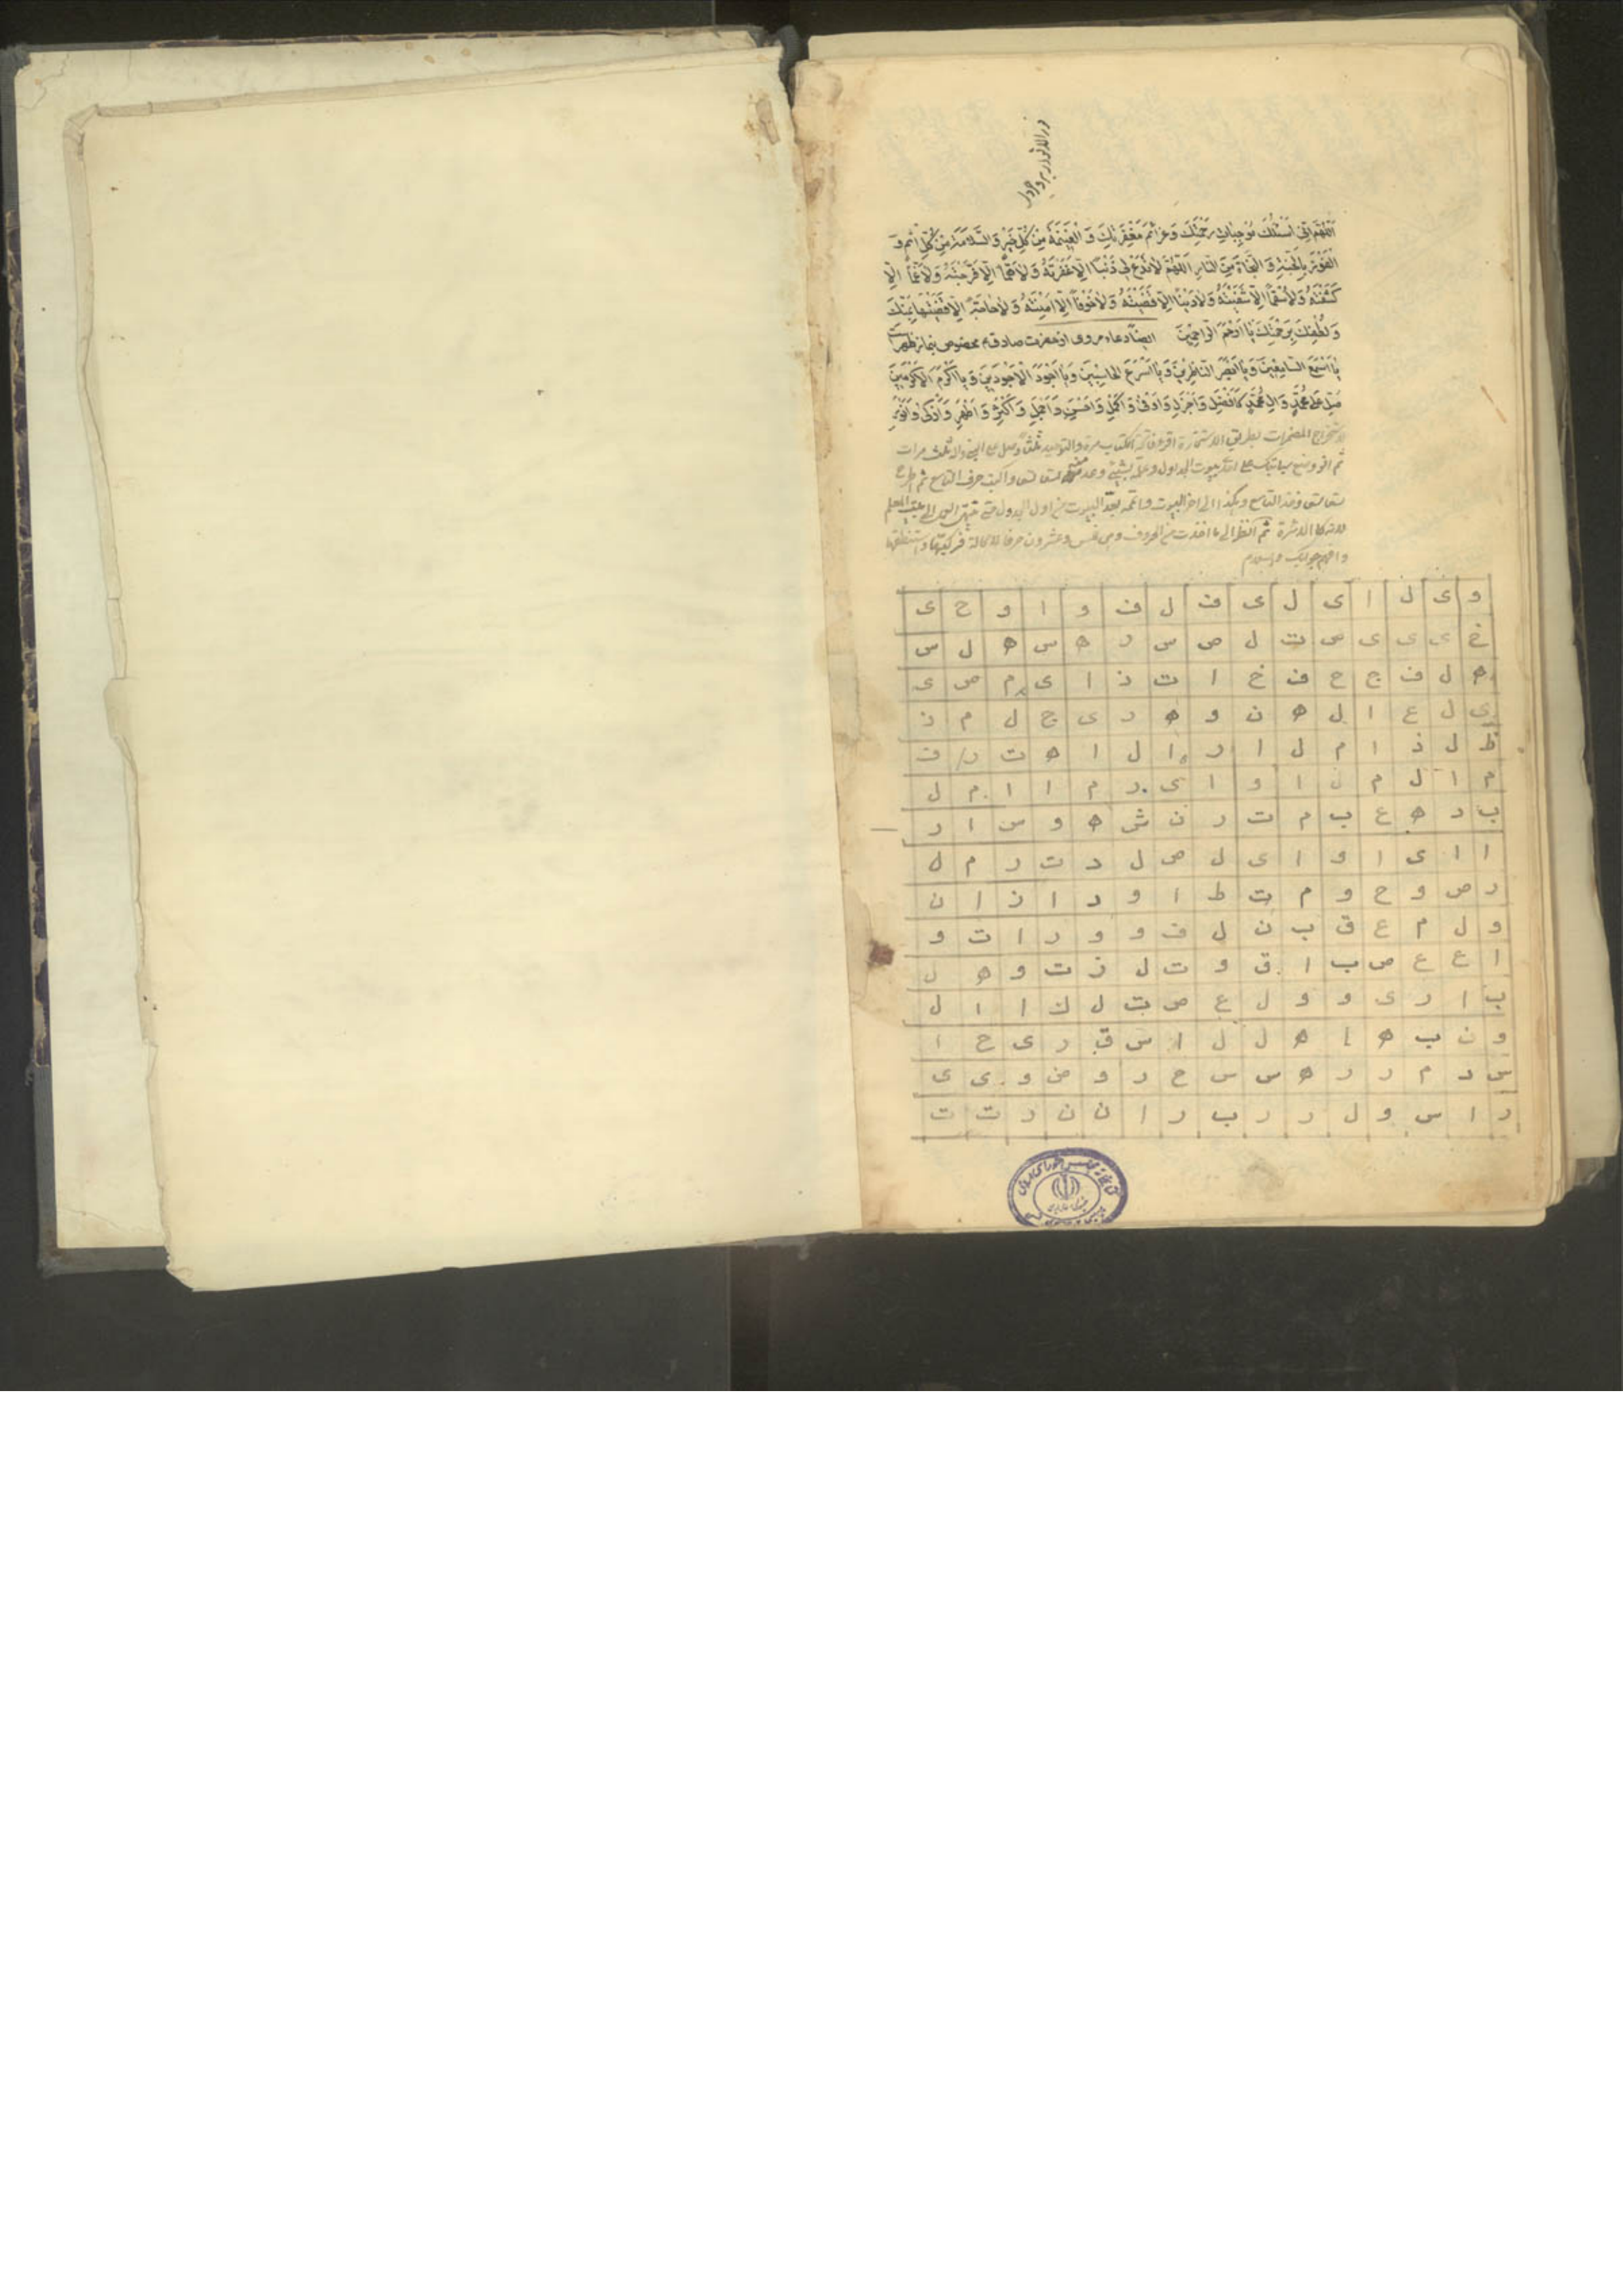 اللهم انی اسئلک موجبات رحمتک و عزائم مغفرتک و الغنیمة من کل خیر و السلامة من کل اثم و
الفوز بالجنة و النجاة من النار اللهم لا تدع لی ذنبا الا غفرته و لا هما الا فرجته و لا غما الا
کشفته و لا سقما الا شفیته و لا دینا الا قضیته و لا خوفا الا امنته و لا حاجة الا قضیتها بمنک
و لطفک برحمتک یا ارحم الراحمین ایضا دعاء مروی از حضرت صادق مخصوص بنماز ظهر است
یا اسمع السامعین و یا ابصر الناظرین و یا اسرع الحاسبین و یا اجود الاجودین و یا اکرم الاکرمین
صل علی محمد و ال محمد کافضل و اجزل و اوفی و اکمل و احسن و اجمل و اکثر و اطهر و ازکی و انور
لاستخراج المضمرات بطریق الاستخارة اقرء فاتحة الکتاب مرة والتوحید ثلثا وصل علی النبی واله ثلث مرات
ثم انو وضع سبابتک علی احد بیوت الجداول وعلمه بشیئ وعد منه واکتب حرف التاسع ثم
وخذ التاسع وهکذا الی اخر البیوت من اول الجدول حتی ینتهی الی
ثم انظر الی ما اخذت من الحروف وهی خمس وعشرون حرفا لا محالة فرکبها واستنطقها
و ی ل ا ی ل ی ف ل ف و ا و ح ی
خ ی ی ی ص ت ل ص س و ه س ه ل س
ه ل ف ج ح ف خ ا ت ذ ا ی م ص ی
ی ل ع ا ل ه ن و ه ر ی ج ل م ذ
ظ ل ذ ا م ل ا ر ا ل ا ه ت ر ف
م ا ل م ل ا و ا ی ر م ا ا م ل
ب د ه ع ب م ت ر ن ش ه و س ا ر
ا ا ی ا و ا ی ل ص ل د ت ر م ل
ر ص و ح و م ت ط ا و د ا ز ا ن
و ل م ع ق ب ن ل ف و و ر ا ت و
ا ع ع ص ب ا ق و ت ل ز ت و ه ل
ب ا ر ی و و ل ع ص ت ل ك ا ا ل
و ن ب ه ا ه ل ل ا س ق ر ی ح ا
س د م ر ر ه س س ح ر و ض و ی ی
ر ا س و ل ر ر ب ر ا ن ن ر ت ت